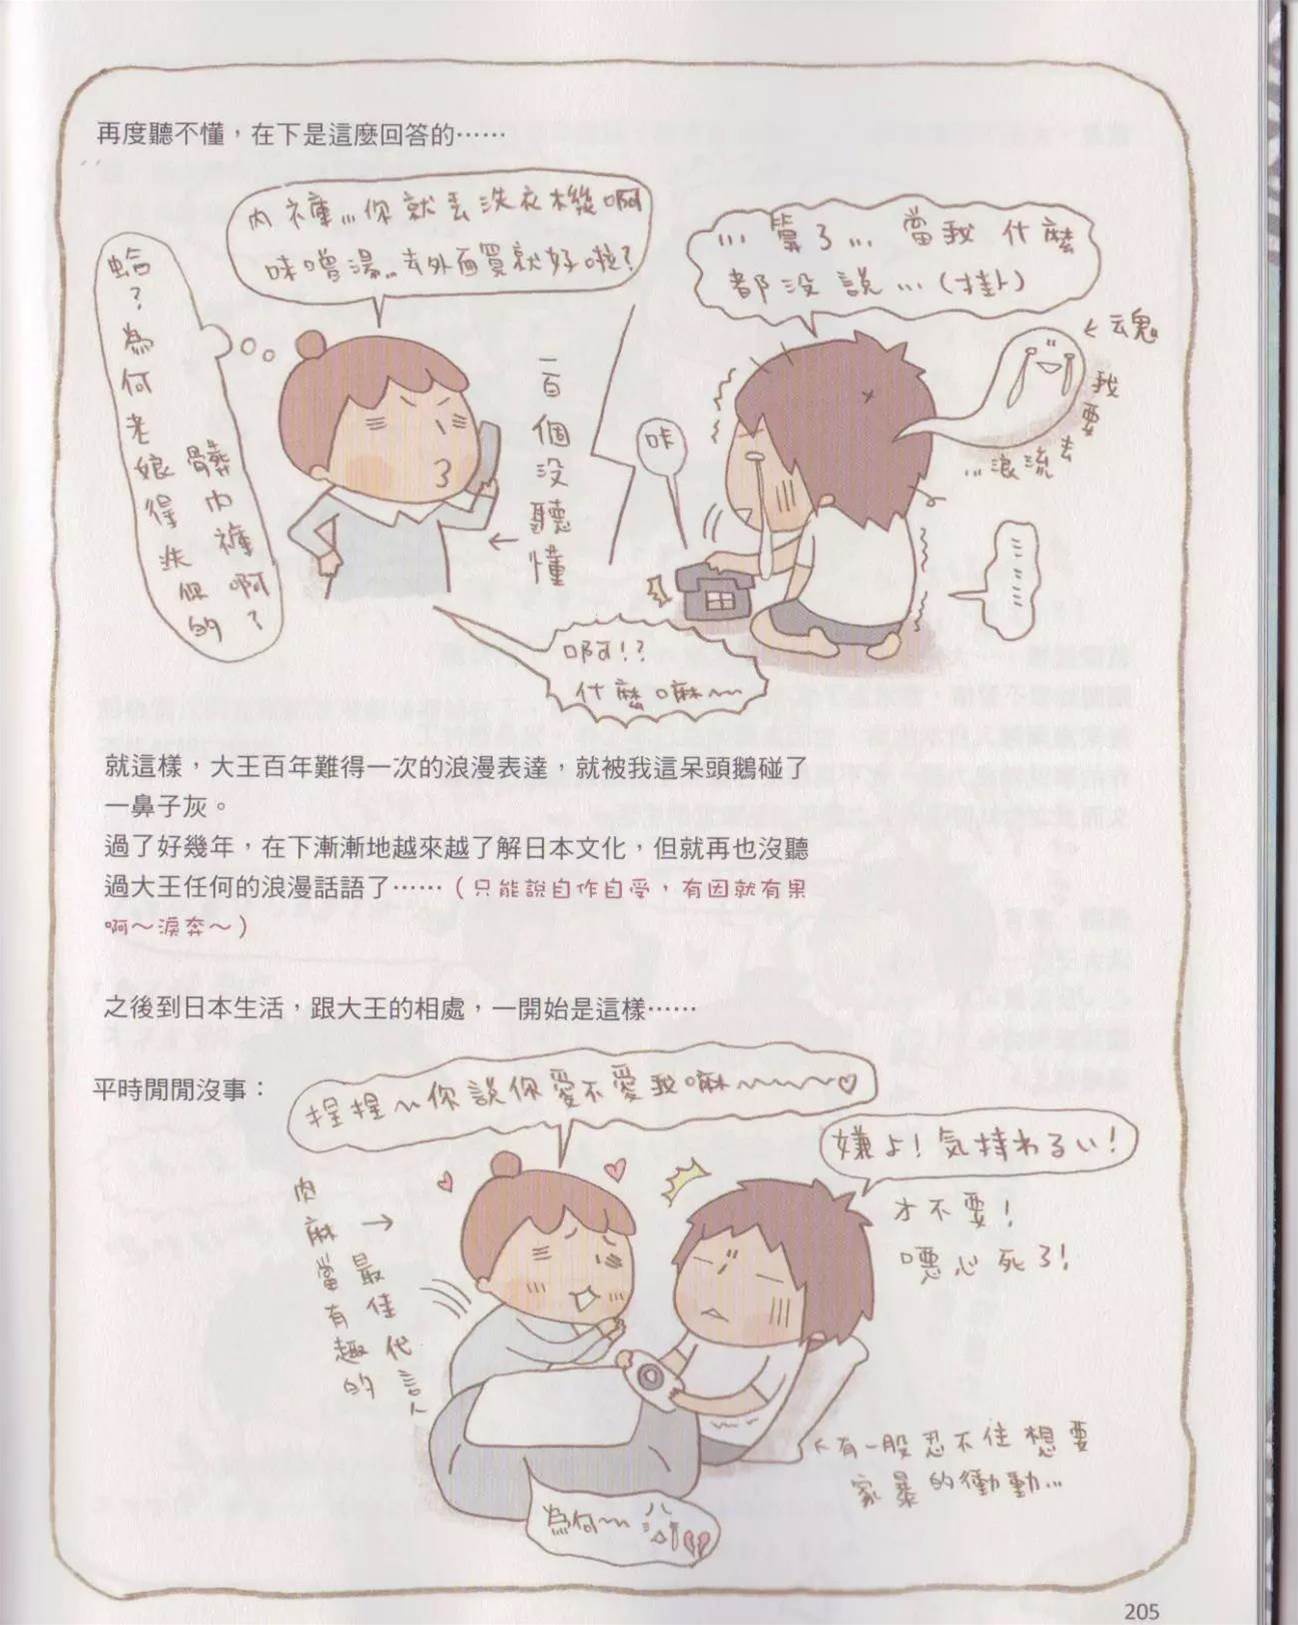 再度聽不懂，在下是這麼回答的⋯⋯
內褲…你就丟洗衣機啊
味噌湯…去外面買就好啦？
蛤？為何老娘得洗你的
髒內褲啊？
一百個沒聽懂
…算了…當我什麼
都沒說…(掛)
←魂
我要去
流浪…
咔
……
啊!?
什麼嘛～
就這樣，大王百年難得一次的浪漫表達，就被我這呆頭鵝碰了
一鼻子灰。
過了好幾年，在下漸漸地越來越了解日本文化，但就再也沒聽
過大王任何的浪漫話語了⋯⋯（只能說自作自受，有因就有果
啊～淚奔～）
之後到日本生活，跟大王的相處，一開始是這樣⋯⋯
平時閒閒沒事：
捏捏～你說你愛不愛我嘛～～～～♡
嫌よ！気持わるい！
才不要！
噁心死了！
肉麻當有趣的
最佳代言人
有一股忍不住想要
家暴的衝動…
為何～
205